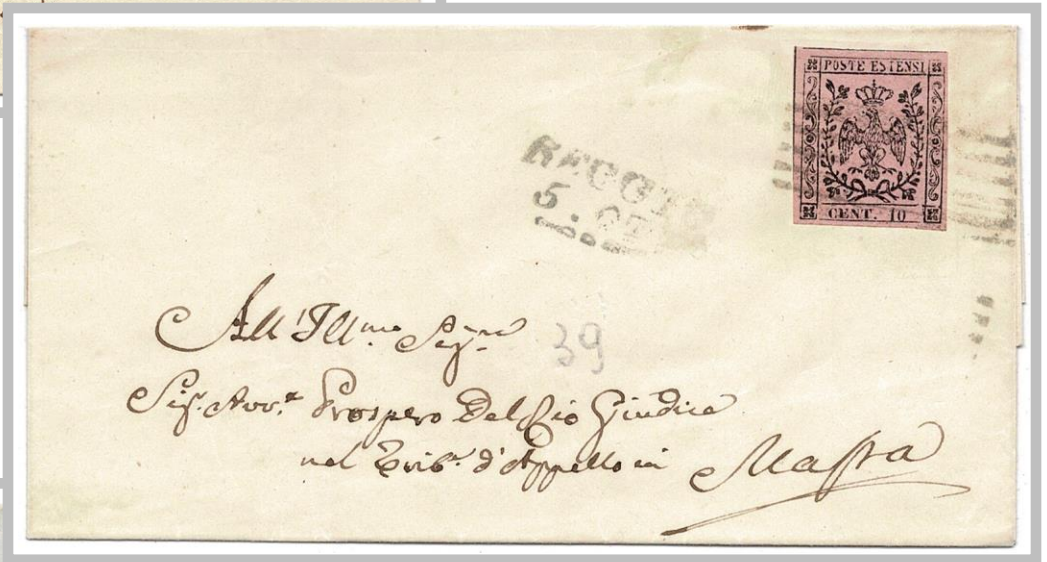 POSTE ESTENSI
CENT. 10
REGGIO
All'Ill.mo Sig.re
39
Sig. Avv.o Prospero Del Rio Giudice
nel Trib.e d'Appello in Massa